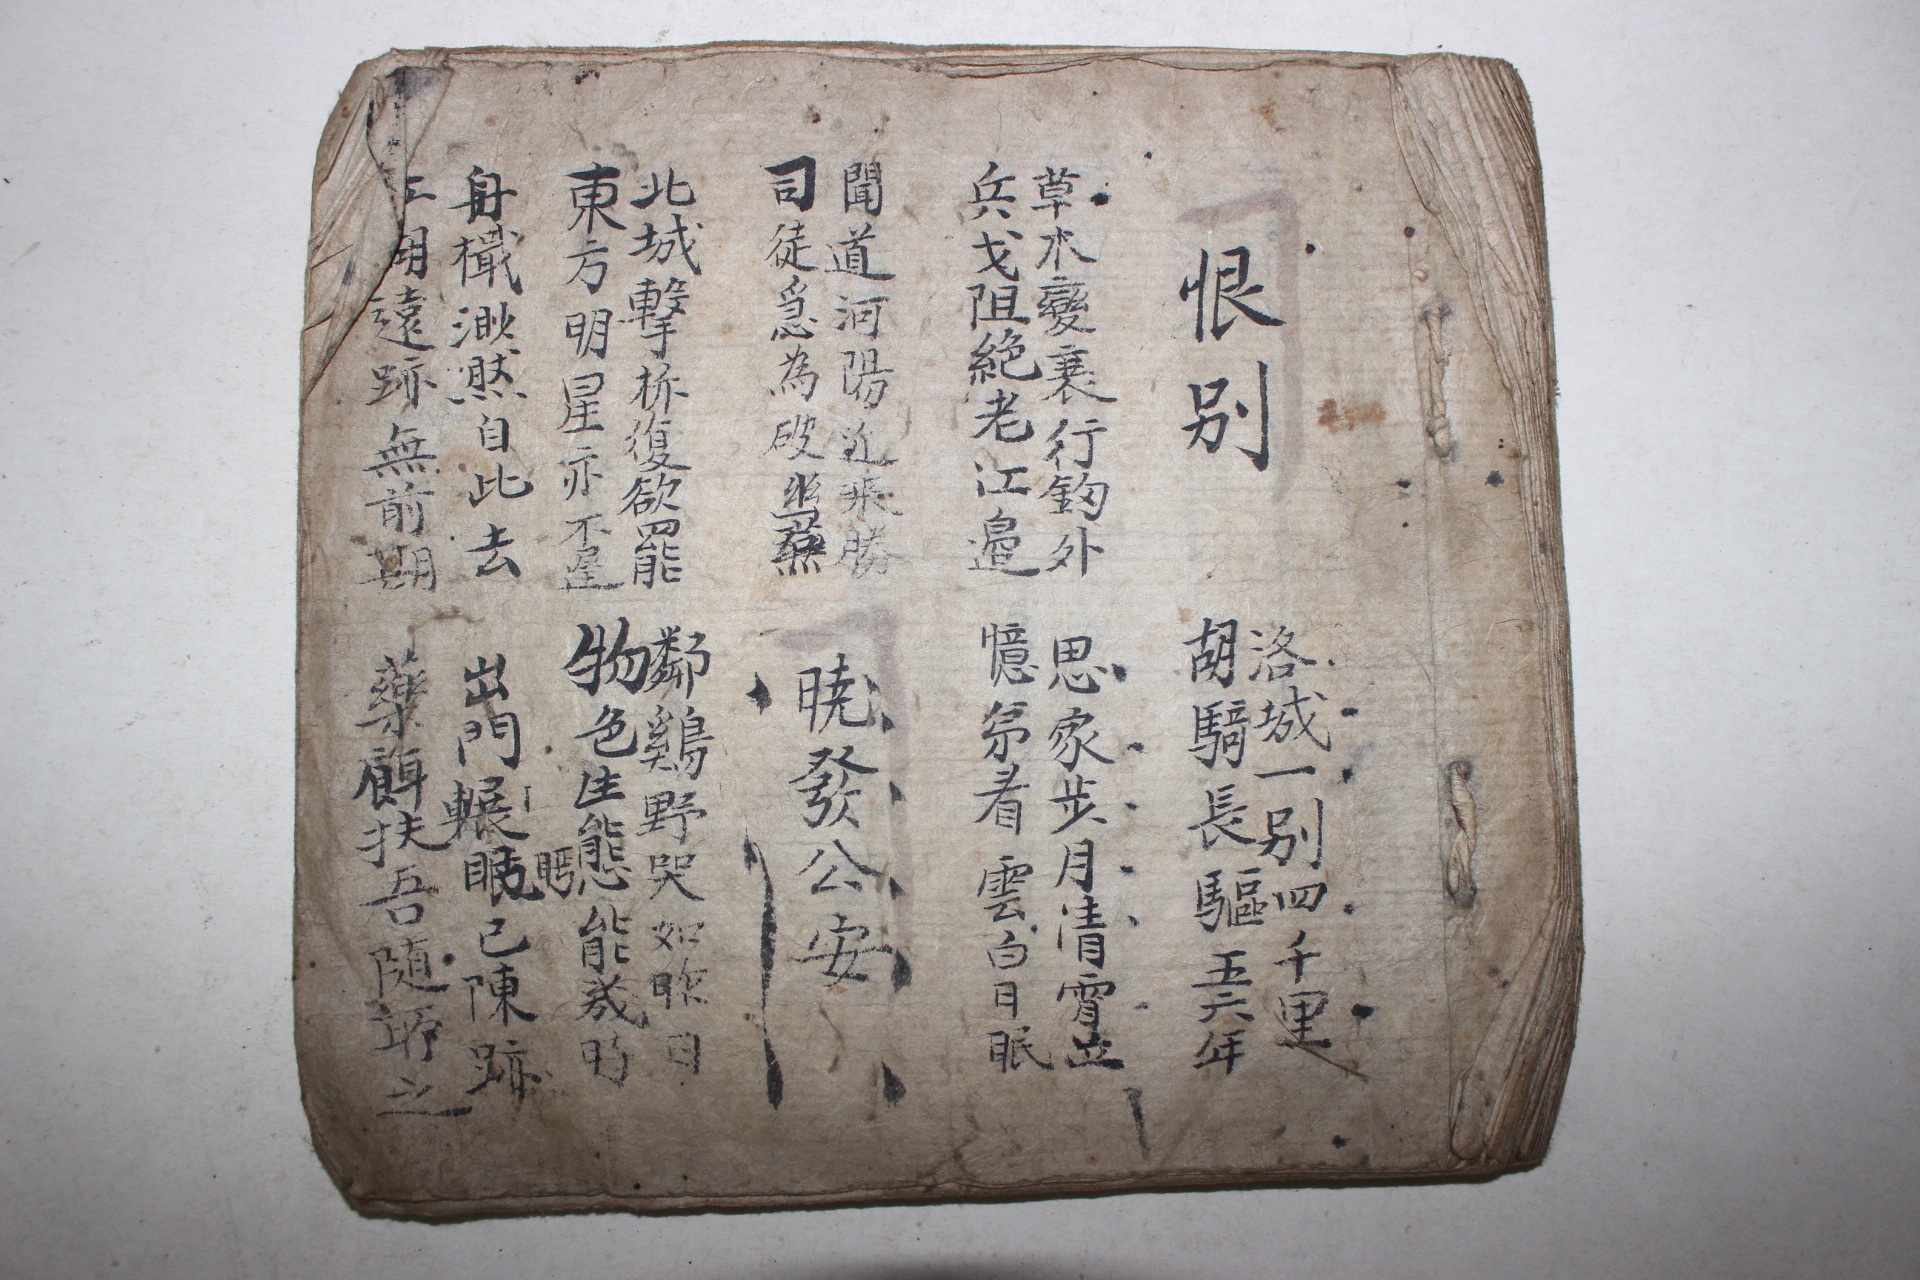 恨別
洛城一別四千里
胡騎長驅五六年
草木變衰行釰外
兵戈阻絶老江邊
思家步月清霄立
憶弟看雲白日眠
聞道河陽近乘勝
司徒急為破幽燕
曉發公安
北城擊柝復欲罷
東方明星亦不遲
鄰鷄野哭如昨日
物色生態能幾時
舟檝渺然自此去
出門輾眄已陳跡
遠跡無前期
藥餌扶吾隨所之